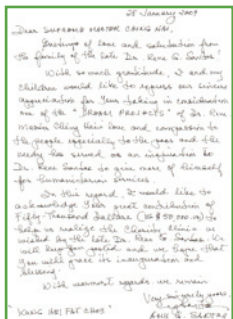 28 January 2009
Dear SUPREME MASTER CHING HAI,
Greetings of love and salutation from
the family of the late Dr. Rene G. Santos!
With so much gratitude, I and my
children would like to express our sincere
appreciation for Your taking in consideration
one of the "DREAM PROJECTS" of Dr. Rene
Ching Hai's love and compassion to
the people especially to the poor and the
needy has served as an inspiration to
Dr. Rene Santos to give more of himself
for humanitarian services.
In this regard, I would like to
acknowledge Your great contribution of
Fifty-Thousand Dollars (US$ 50,000.00) to
help us realize the Charity Clinic as
wished by the late Dr. Rene G. Santos. He
will and we hope that
You will grace its inauguration and
blessing.
With warmest regards we remain
Very sincerely yours,
SANTOS